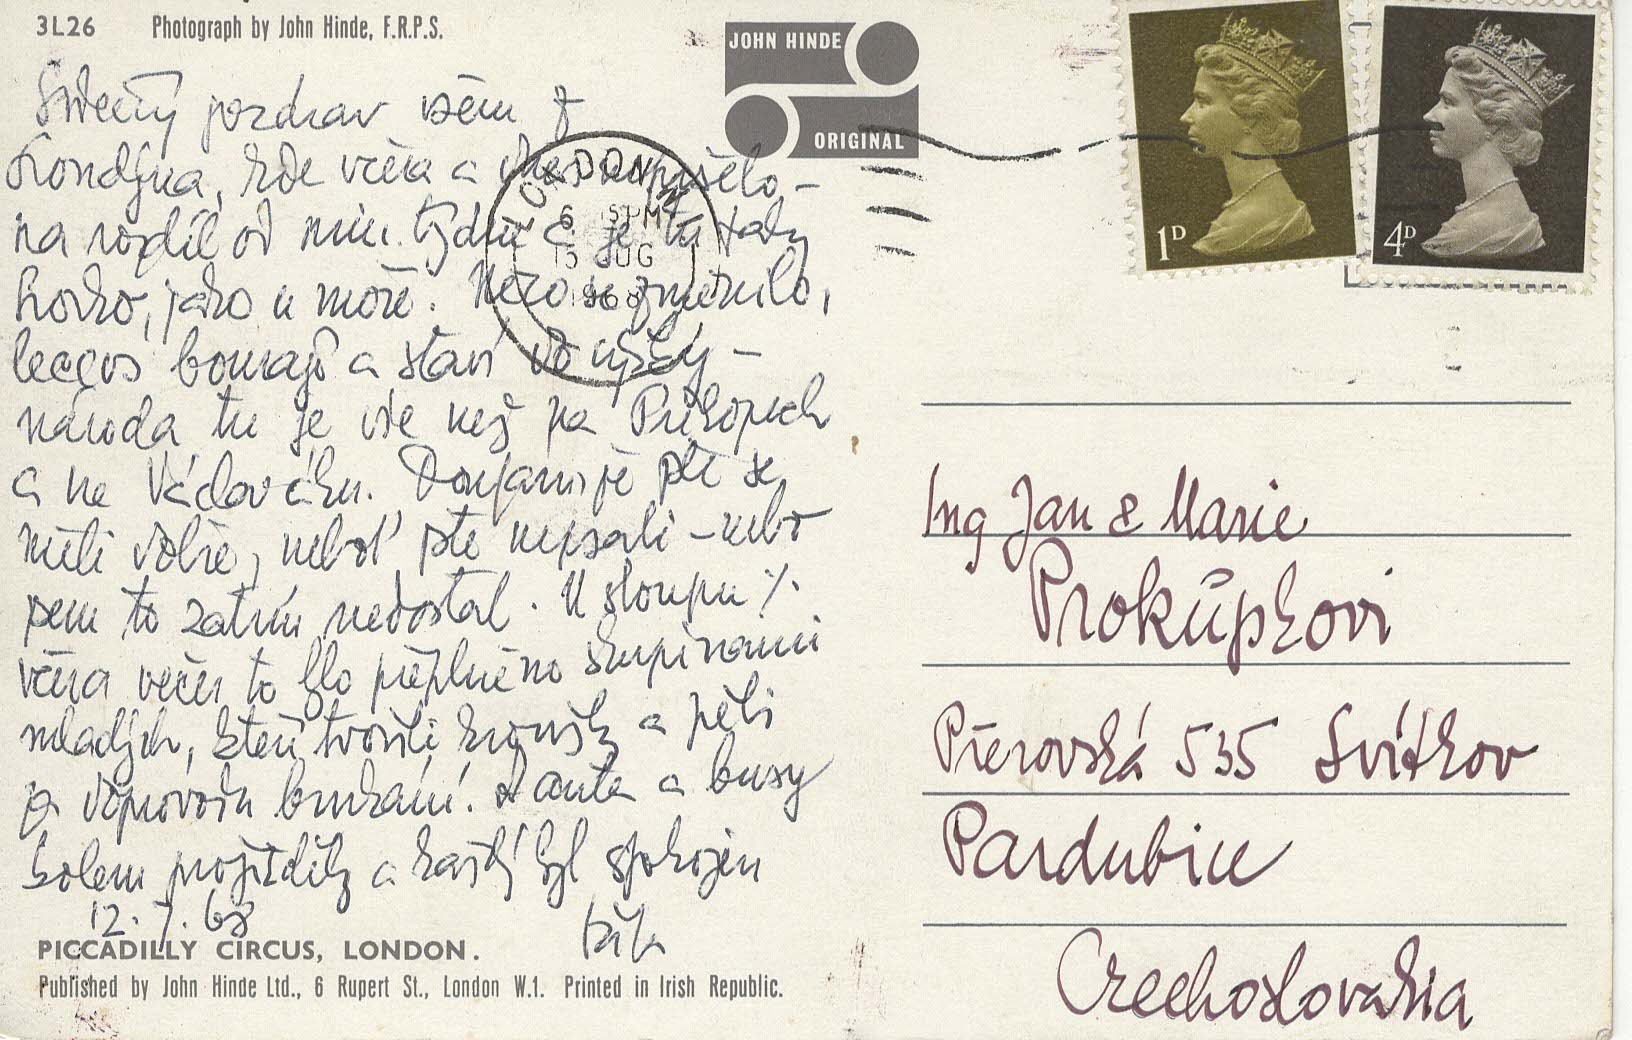 3L26 Photograph by John Hinde, F.R.P.S.
JOHN HINDE
ORIGINAL
1D
4D
LONDON
6 15PM
15 AUG
1968
Srdečný pozdrav všem z
Londýna, kde včera a dnes nepršelo –
na rozdíl od min. týdnů a je tu tady
horko, jako u moře. Něco se změnilo,
leccos bourají a staví do výšky –
národa tu je více než na Příkopech
a na Václaváku. Doufám, že jste se
měli dobře, neboť jste nepsali – nebo
jsem to zatím nedostal. U sloupu %.
včera večer to bylo přeplněno skupinami
mladých, kteří tvořili kroužky a pěli
za doprovodu brnkání. Auta a busy
kolem projížděly a každý byl spokojen
12. 7. 68
PICCADILLY CIRCUS, LONDON.
Published by John Hinde Ltd., 6 Rupert St., London W.1. Printed in Irish Republic.
Ing Jan & Marie
Prokůpkovi
Přerovská 535 Svítkov
Pardubice
Czechoslovakia